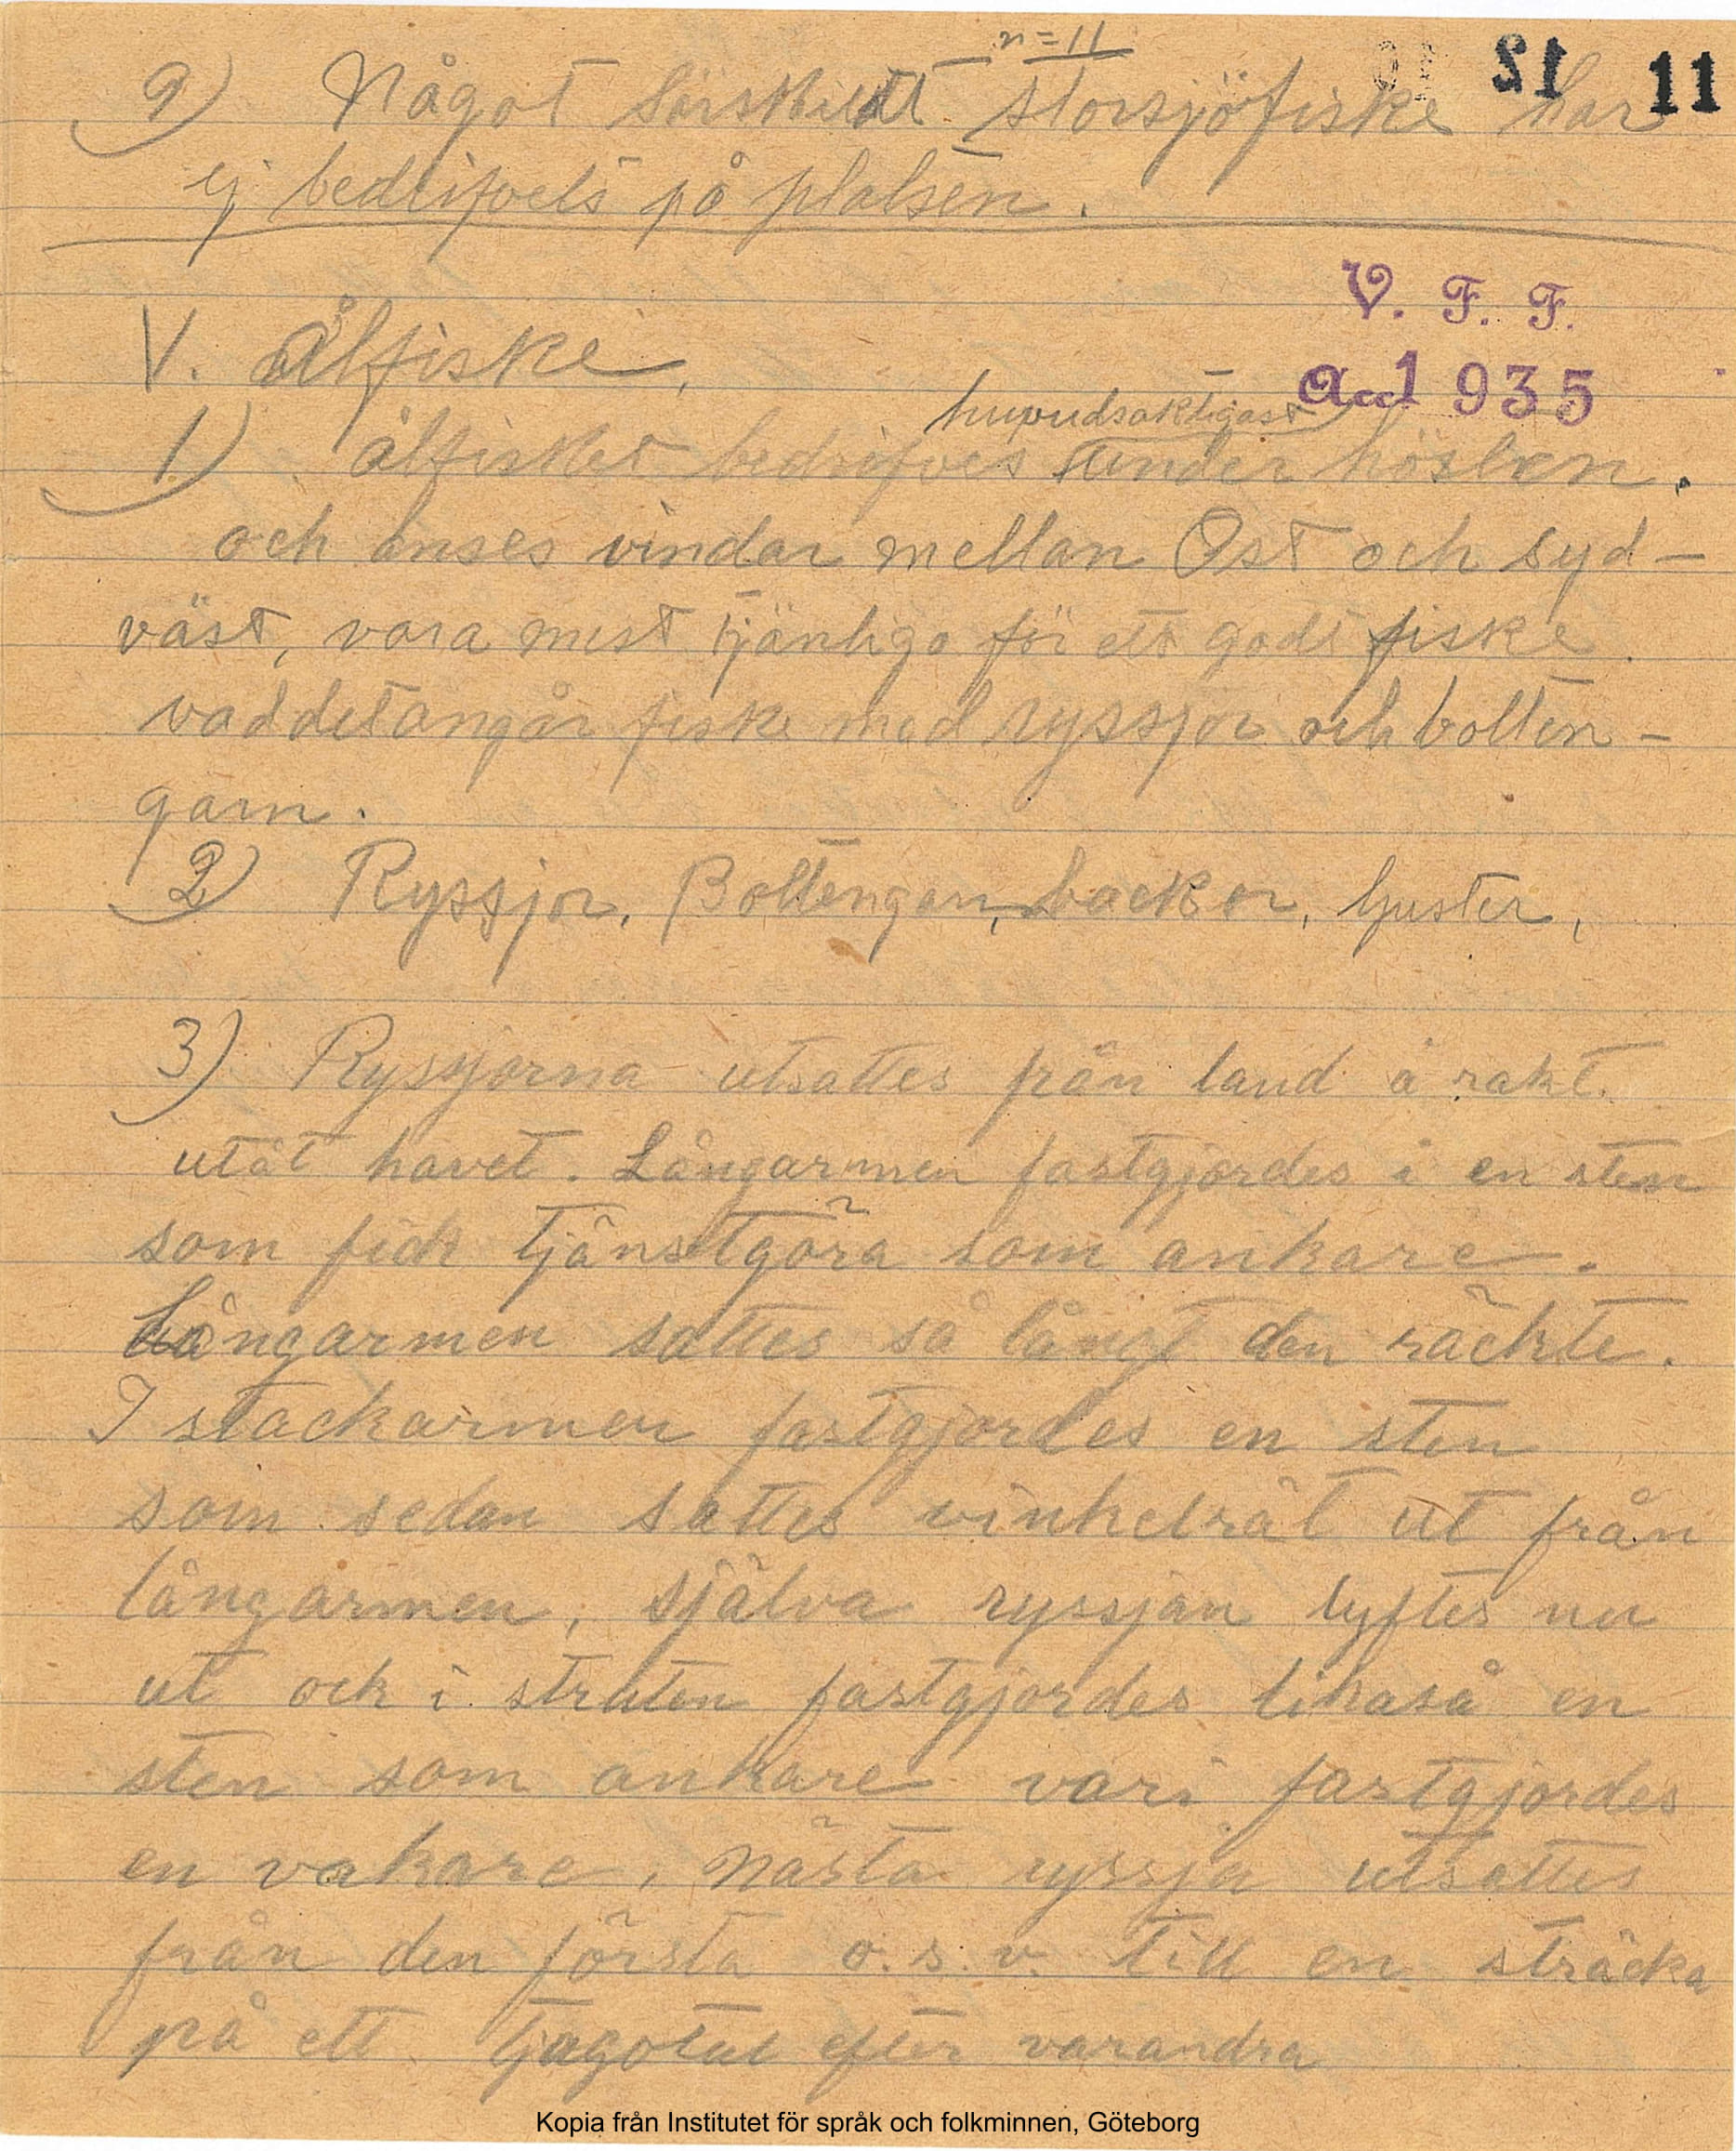 n=11
12 11
9) Något särskildt storsjöfiske har
ej bedrifvets på platsen.
V. F. F.
V. Ålfiske.
Acc 1935
huvudsakligast
1) ålfisket bedrifves under hösten.
och anses vindar mellan Ost och syd-
väst, vara mest tjänliga för ett godt fiske
vad det angår fiske med ryssjor och botten-
garn.
2) Ryssjor, Bottengarn, backor, ljuster,
3) Ryssjorna utsattes från land å rakt
utåt havet. Långarmen fastgjordes i en sten
som fick tjänstgöra som ankare.
Långarmen sattes så långt den räckte.
I stackarmen fastgjordes en sten
som sedan sattes vinkelrät ut från
långarmen, själva ryssjan lyftes nu
ut och i struten fastgjordes likaså en
sten som ankare vari fastgjordes
en vakare, nästa ryssja utsattes
från den första o.s.v. till en sträcka
på ett tjugotal efter varandra
Kopia från Institutet för språk och folkminnen, Göteborg